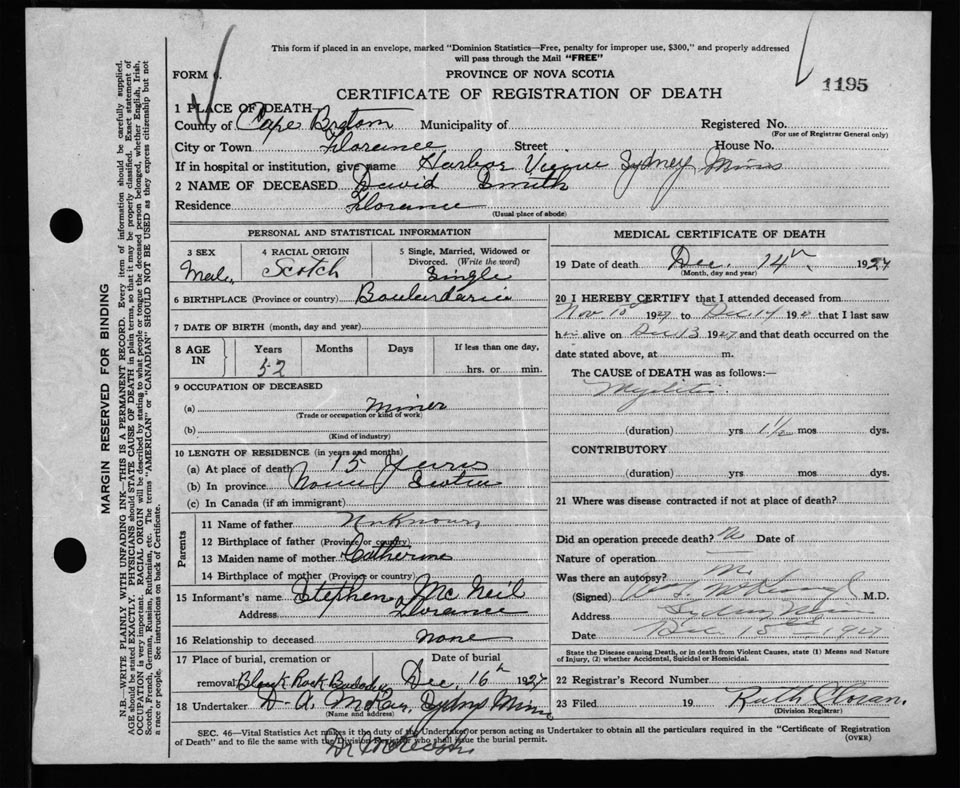 This form if placed in an envelope, marked "Dominion Statistics—Free, penalty for improper use, $300," and properly addressed
will pass through the Mail "FREE"
FORM 6.
PROVINCE OF NOVA SCOTIA
1195
CERTIFICATE OF REGISTRATION OF DEATH
1 PLACE OF DEATH
County of Cape Breton Municipality of Registered No.
(For use of Registrar General only)
City or Town Florance Street House No.
If in hospital or institution, give name Harbor View Sydney Mines
2 NAME OF DECEASED David Smith
Residence Florance
(Usual place of abode)
PERSONAL AND STATISTICAL INFORMATION
3 SEX Male
4 RACIAL ORIGIN Scotch
5 Single, Married, Widowed or Divorced. (Write the word) Single
6 BIRTHPLACE (Province or country) Boulardarie
7 DATE OF BIRTH (month, day and year)
8 AGE IN Years 52 Months Days If less than one day, hrs. or min.
9 OCCUPATION OF DECEASED
(a) Miner
(Trade or occupation or kind of work)
(b)
(Kind of industry)
10 LENGTH OF RESIDENCE (in years and months)
(a) At place of death 15 years
(b) In province Nova Scotia
(c) In Canada (if an immigrant)
Parents
11 Name of father Unknown
12 Birthplace of father (Province or country)
13 Maiden name of mother Catherine
14 Birthplace of mother (Province or country)
15 Informant's name Stephen Mc Neil
Address Florance
16 Relationship to deceased none
17 Place of burial, cremation or removal Black Rock Date of burial Dec. 16th 1927
18 Undertaker D. A. Sydney Mines
(Name and address)
MEDICAL CERTIFICATE OF DEATH
19 Date of death Dec. 14th 1927
(Month, day and year)
20 I HEREBY CERTIFY that I attended deceased from
Nov 10 1927 to Dec. 14 192 that I last saw
him alive on Dec 13 1927 and that death occurred on the
date stated above, at m.
The CAUSE of DEATH was as follows:—
Myelitis
(duration) yrs 1½ mos dys.
CONTRIBUTORY
(duration) yrs. mos dys.
21 Where was disease contracted if not at place of death?
Did an operation precede death? No Date of
Nature of operation
Was there an autopsy? No
(Signed) M.D.
Address Sydney Mines
Date Dec. 15 1927
State the Disease causing Death, or in death from Violent Causes, state (1) Means and Nature
of Injury, (2) whether Accidental, Suicidal or Homicidal.
22 Registrar's Record Number
23 Filed 19 Ruth
(Division Registrar)
SEC. 46—Vital Statistics Act makes it the duty of the Undertaker or person acting as Undertaker to obtain all the particulars required in the "Certificate of Registration
of Death" and to file the same with the Division Registrar who shall issue the burial permit. (OVER)
MARGIN RESERVED FOR BINDING
N.B.—WRITE PLAINLY WITH UNFADING INK—THIS IS A PERMANENT RECORD. Every item of information should be carefully supplied.
AGE should be stated EXACTLY. PHYSICIANS should STATE CAUSE OF DEATH in plain terms, so that it may be properly classified. Exact statement of
OCCUPATION is very important. RACIAL ORIGIN will be described by stating to what people or tongue the deceased person belonged, whether English, Irish,
Scotch, French, German, Russian, Ruthenian, etc. The terms "AMERICAN" or "CANADIAN" SHOULD NOT BE USED as they express citizenship but not
a race or people. See instructions on back of Certificate.